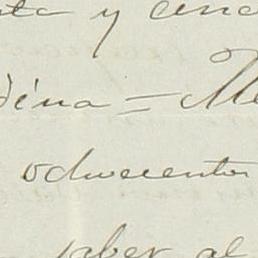 ta y cinc
dina = Me
ochocientos
saber al